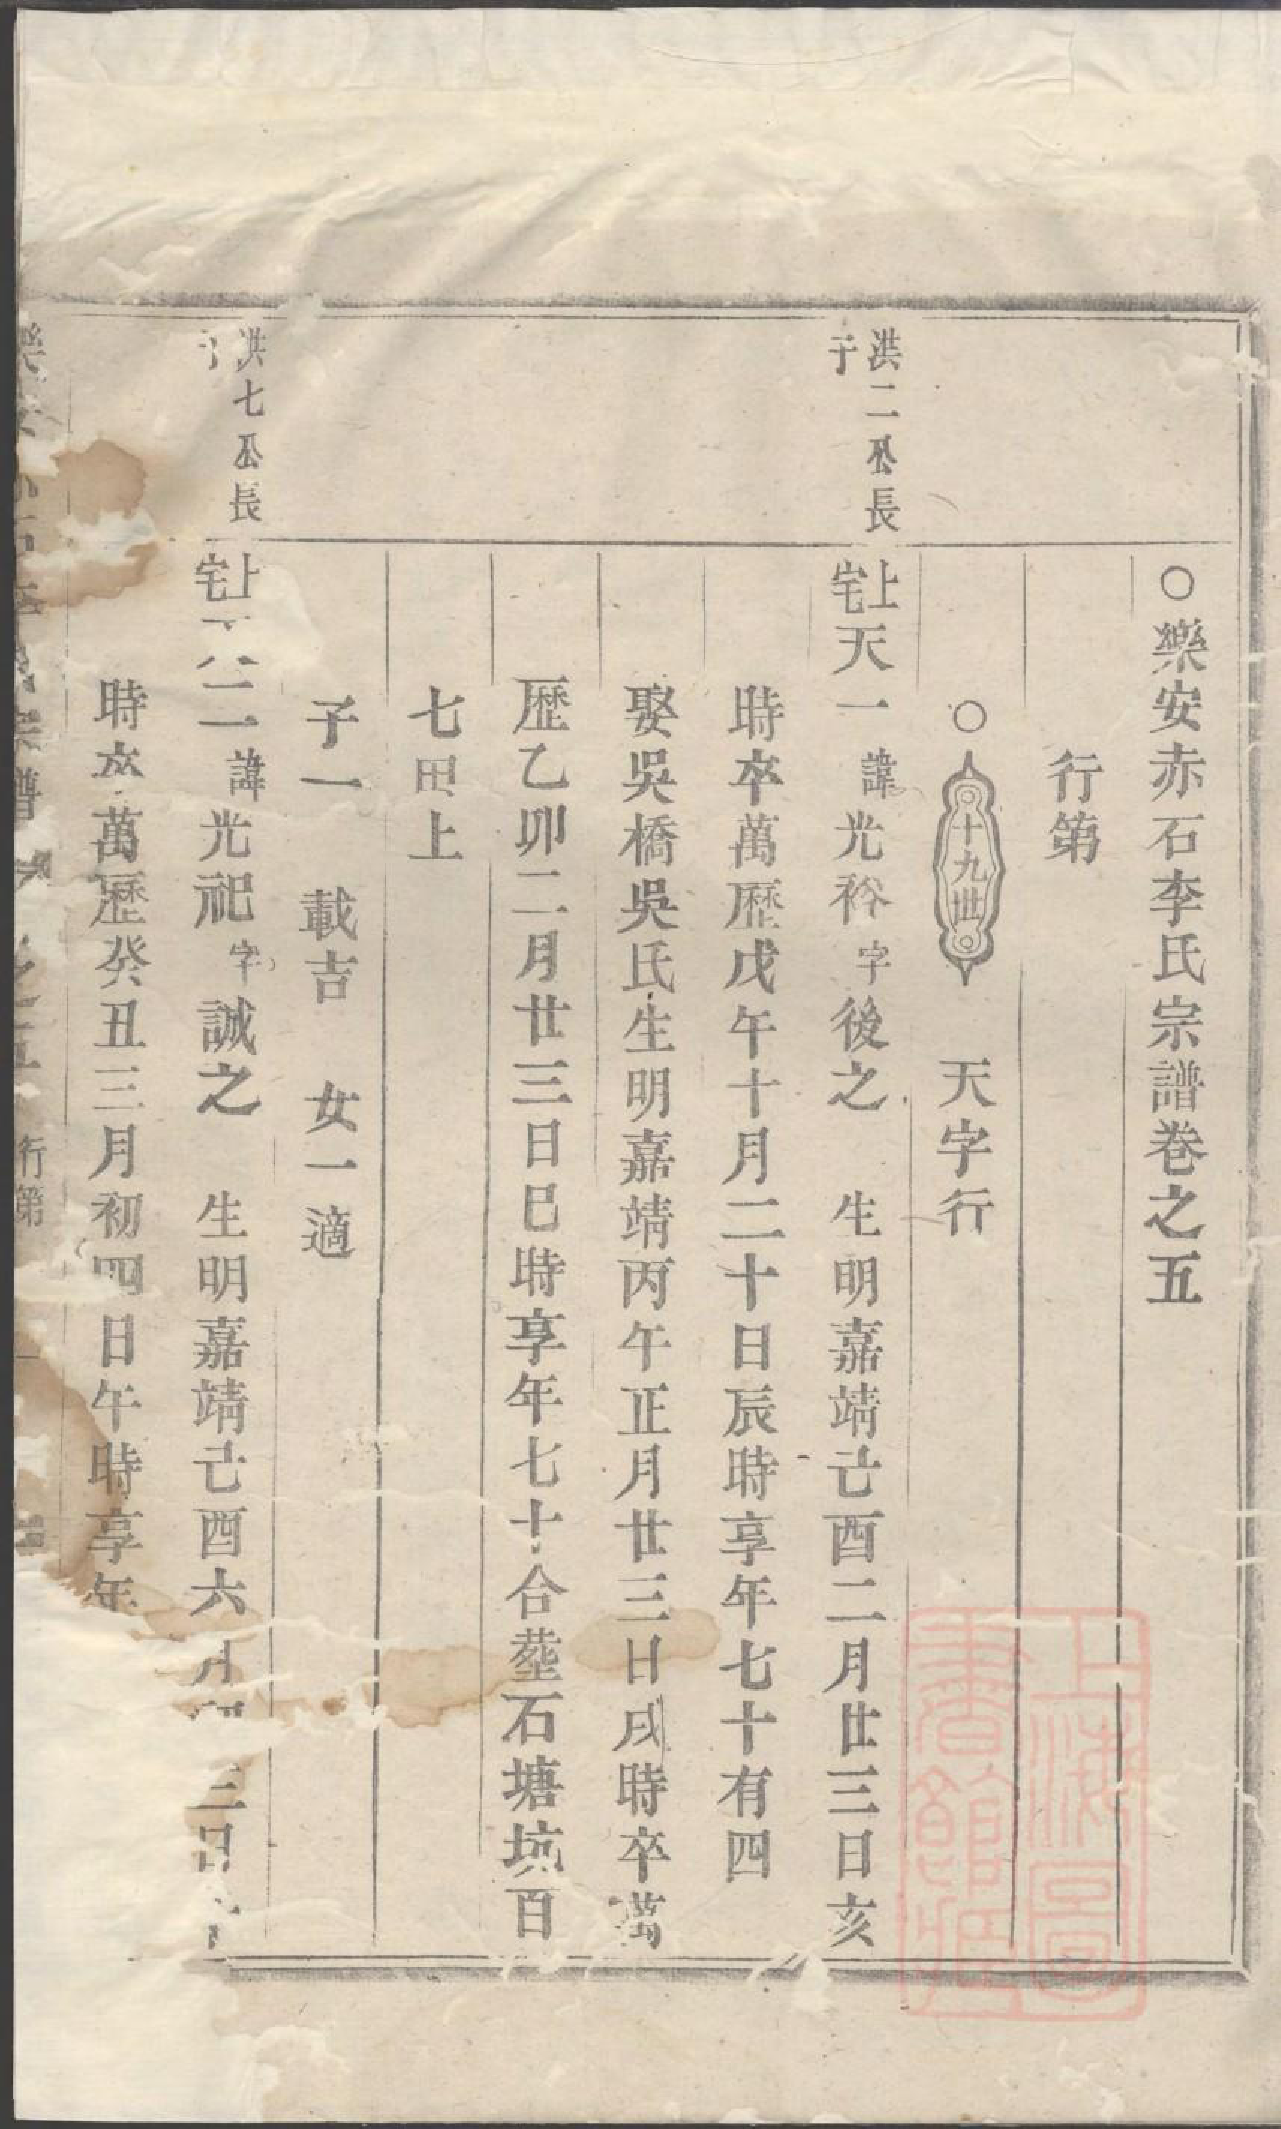 ○樂安赤石李氏宗譜卷之五
行第
○十九世 天字行
洪二公長子
上宅天一諱光裕字後之 生明嘉靖己酉二月廿三日亥
時卒萬歷戊午十月二十日辰時享年七十有四
娶吳橋吳氏生明嘉靖丙午正月廿三日戌時卒萬
歷乙卯二月廿三日巳時享年七十合塟石塘坑百
七田上
子一 載吉 女一適
洪七公長子
上宅天二諱光祀字誠之 生明嘉靖己酉六月初三日
時卒萬歷癸丑三月初四日午時享年
宗譜 之五 行第 一
上海圖書館藏